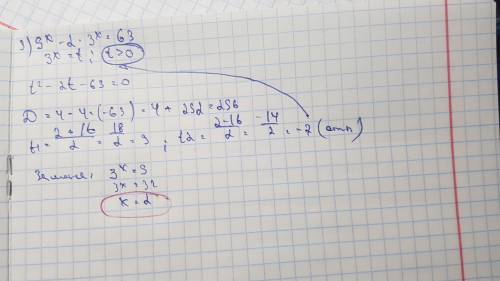 3) 9ˣ - 2 · 3ˣ = 63
3ˣ = t; t > 0
t² - 2t - 63 = 0
D = 4 - 4 · (-63) = 4 + 252 = 256
t₁ = (2 + 16)/2 = 18/2 = 9 ; t2 = (2 - 16)/2 = -14/2 = -7 (отп)
Замена; 3ˣ = 9
3ˣ = 3²
x = 2